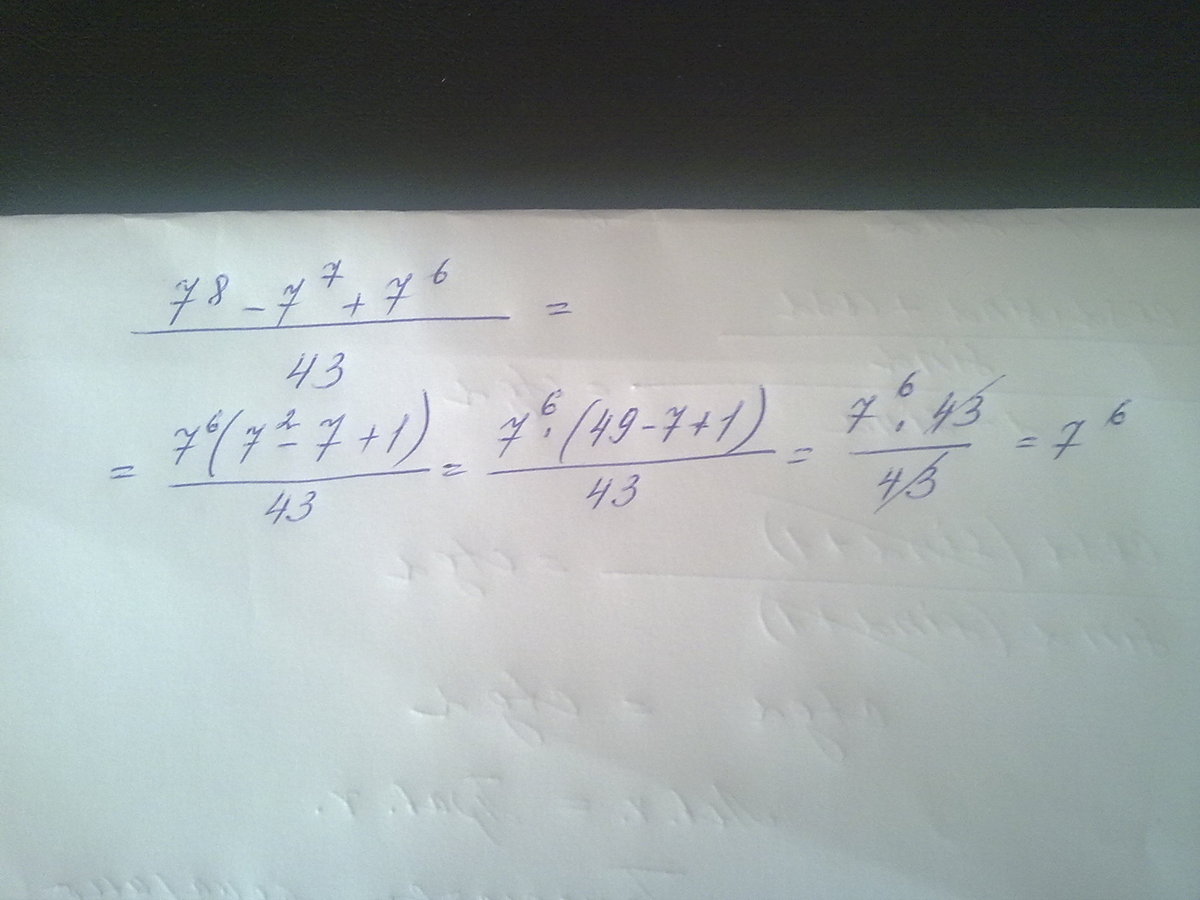 (7^8 - 7^7 + 7^6) / 43 =
= 7^6(7^2 - 7 + 1) / 43 = 7^6 · (49 - 7 + 1) / 43 = 7^6 · 43 / 43 = 7^6